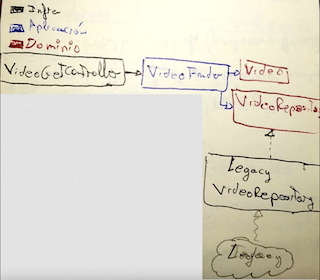 Infra
Aplicación
Dominio
VideoGetController
VideoFinder
Video
VideoRepository
Legacy
VideoRepository
Legacy